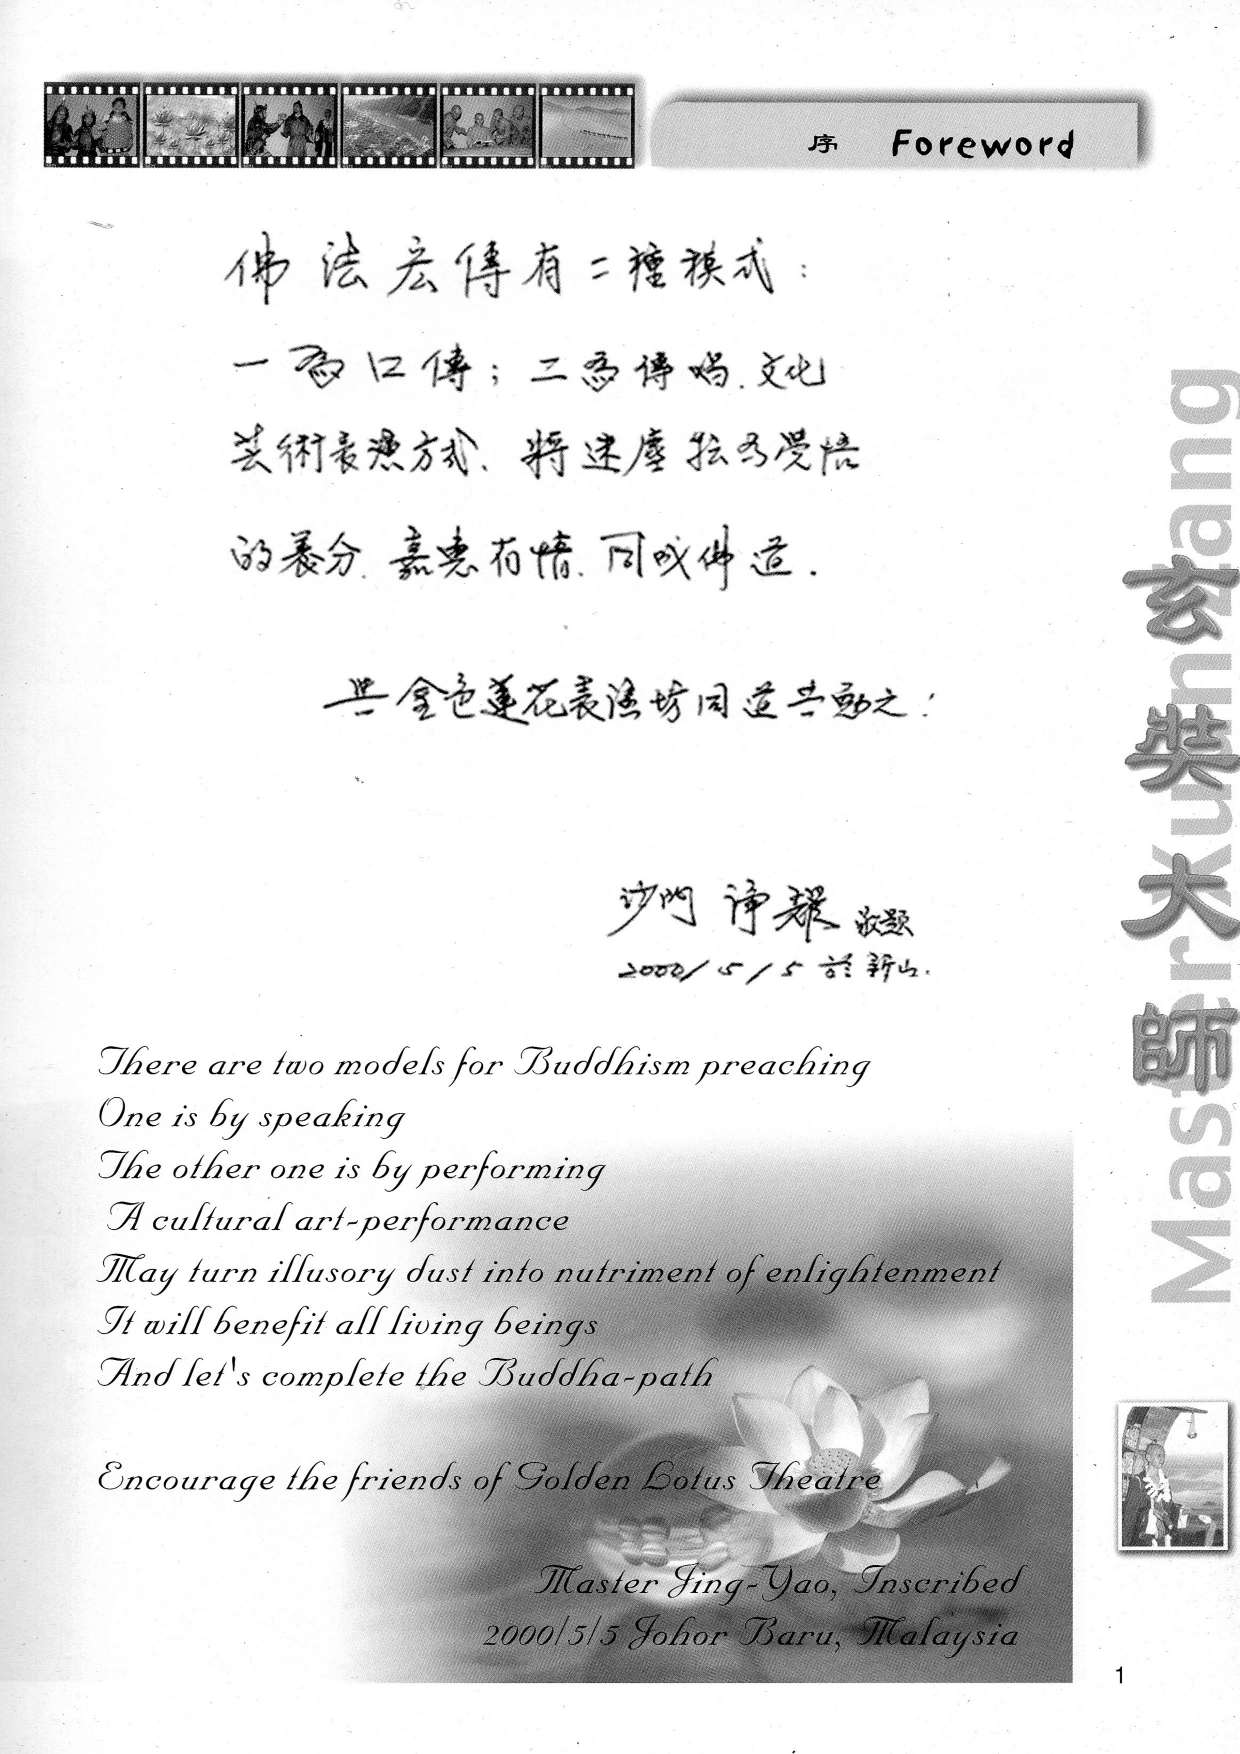 序 Foreword
佛法宏傳有二種模式：
一為口傳；二為傳唱、文化
芸術表演方式、將迷塵転為覺悟
的養分、嘉惠有情、同成佛道．
與金色蓮花表演坊同道共勉之！
沙門 淨耀 敬題
2000/5/5 於新山.
There are two models for Buddhism preaching
One is by speaking
The other one is by performing
A cultural art-performance
May turn illusory dust into nutriment of enlightenment
It will benefit all living beings
And let's complete the Buddha-path
Encourage the friends of Golden Lotus Theatre
Master Jing-Yao, Inscribed
2000/5/5 Johor Baru, Malaysia
玄奘大師
Master Xuanzang
1